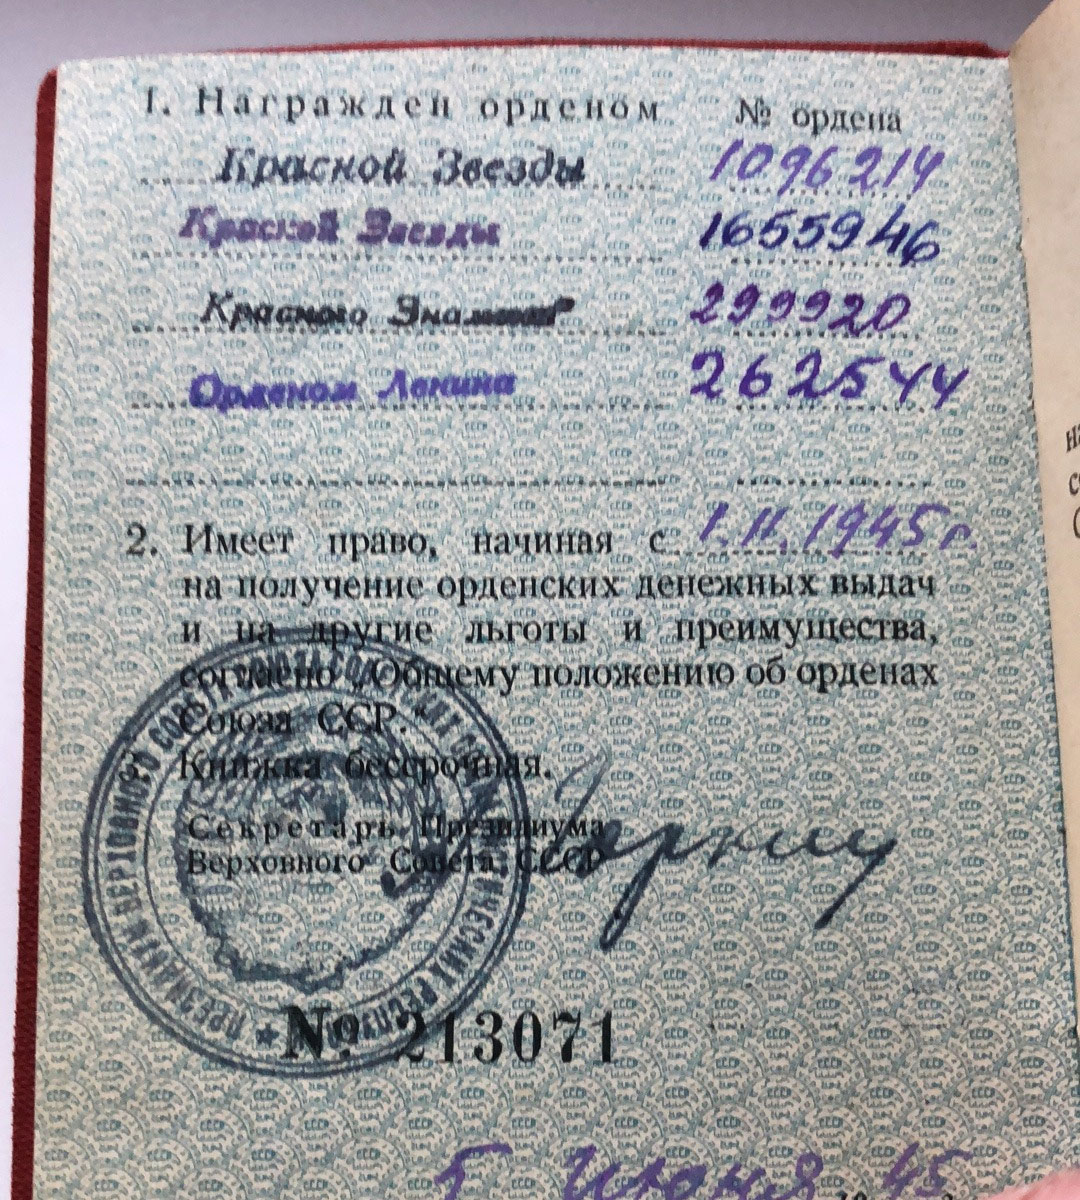 1. Награжден орденом № ордена
Красной Звезды 1096214
Красной Звезды 1655946
Красного Знамени 299920
Орденом Ленина 262544
2. Имеет право, начиная с 1.II.1945 г.
на получение орденских денежных выдач
и на другие льготы и преимущества,
согласно „Общему положению об орденах
Союза ССР.“
Книжка бессрочная.
Секретарь Президиума
Верховного Совета СССР
ПРЕЗИДИУМ ВЕРХОВНОГО СОВЕТА СОЮЗА СОВЕТСКИХ СОЦИАЛИСТИЧЕСКИХ РЕСПУБЛИК
№ 213071
5 июня 45